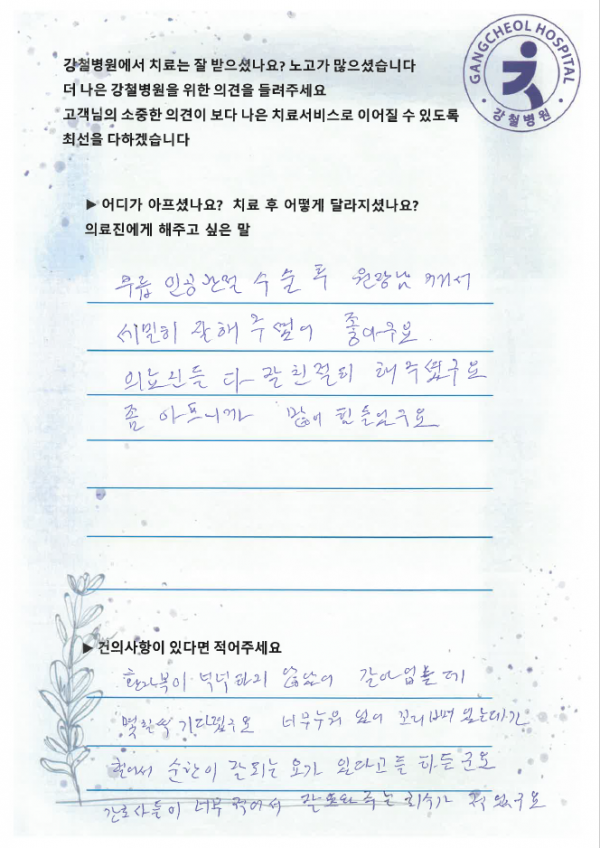 GANGCHEOL HOSPITAL
강철병원
강철병원에서 치료는 잘 받으셨나요? 노고가 많으셨습니다
더 나은 강철병원을 위한 의견을 들려주세요
고객님의 소중한 의견이 보다 나은 치료서비스로 이어질 수 있도록
최선을 다하겠습니다
▶ 어디가 아프셨나요? 치료 후 어떻게 달라지셨나요?
의료진에게 해주고 싶은 말
무릎 인공관절 수술 후 원장님 께서
세밀히 잘해 주셨어 좋아구요.
의뇨인들 다 잘 친절히 해주셨구요
좀 아프니까 많이 힘들었구요
▶ 건의사항이 있다면 적어주세요
환자복이 넉넉하지 않았어 갈아입를데
몇일씩 기다렸구요 너무누워 있어 꼬리뼈
순환이 잘되는 요가 있다고들 하든군요
간호사들이 너무 적어서 잘 도와주는 회수가 적었구요